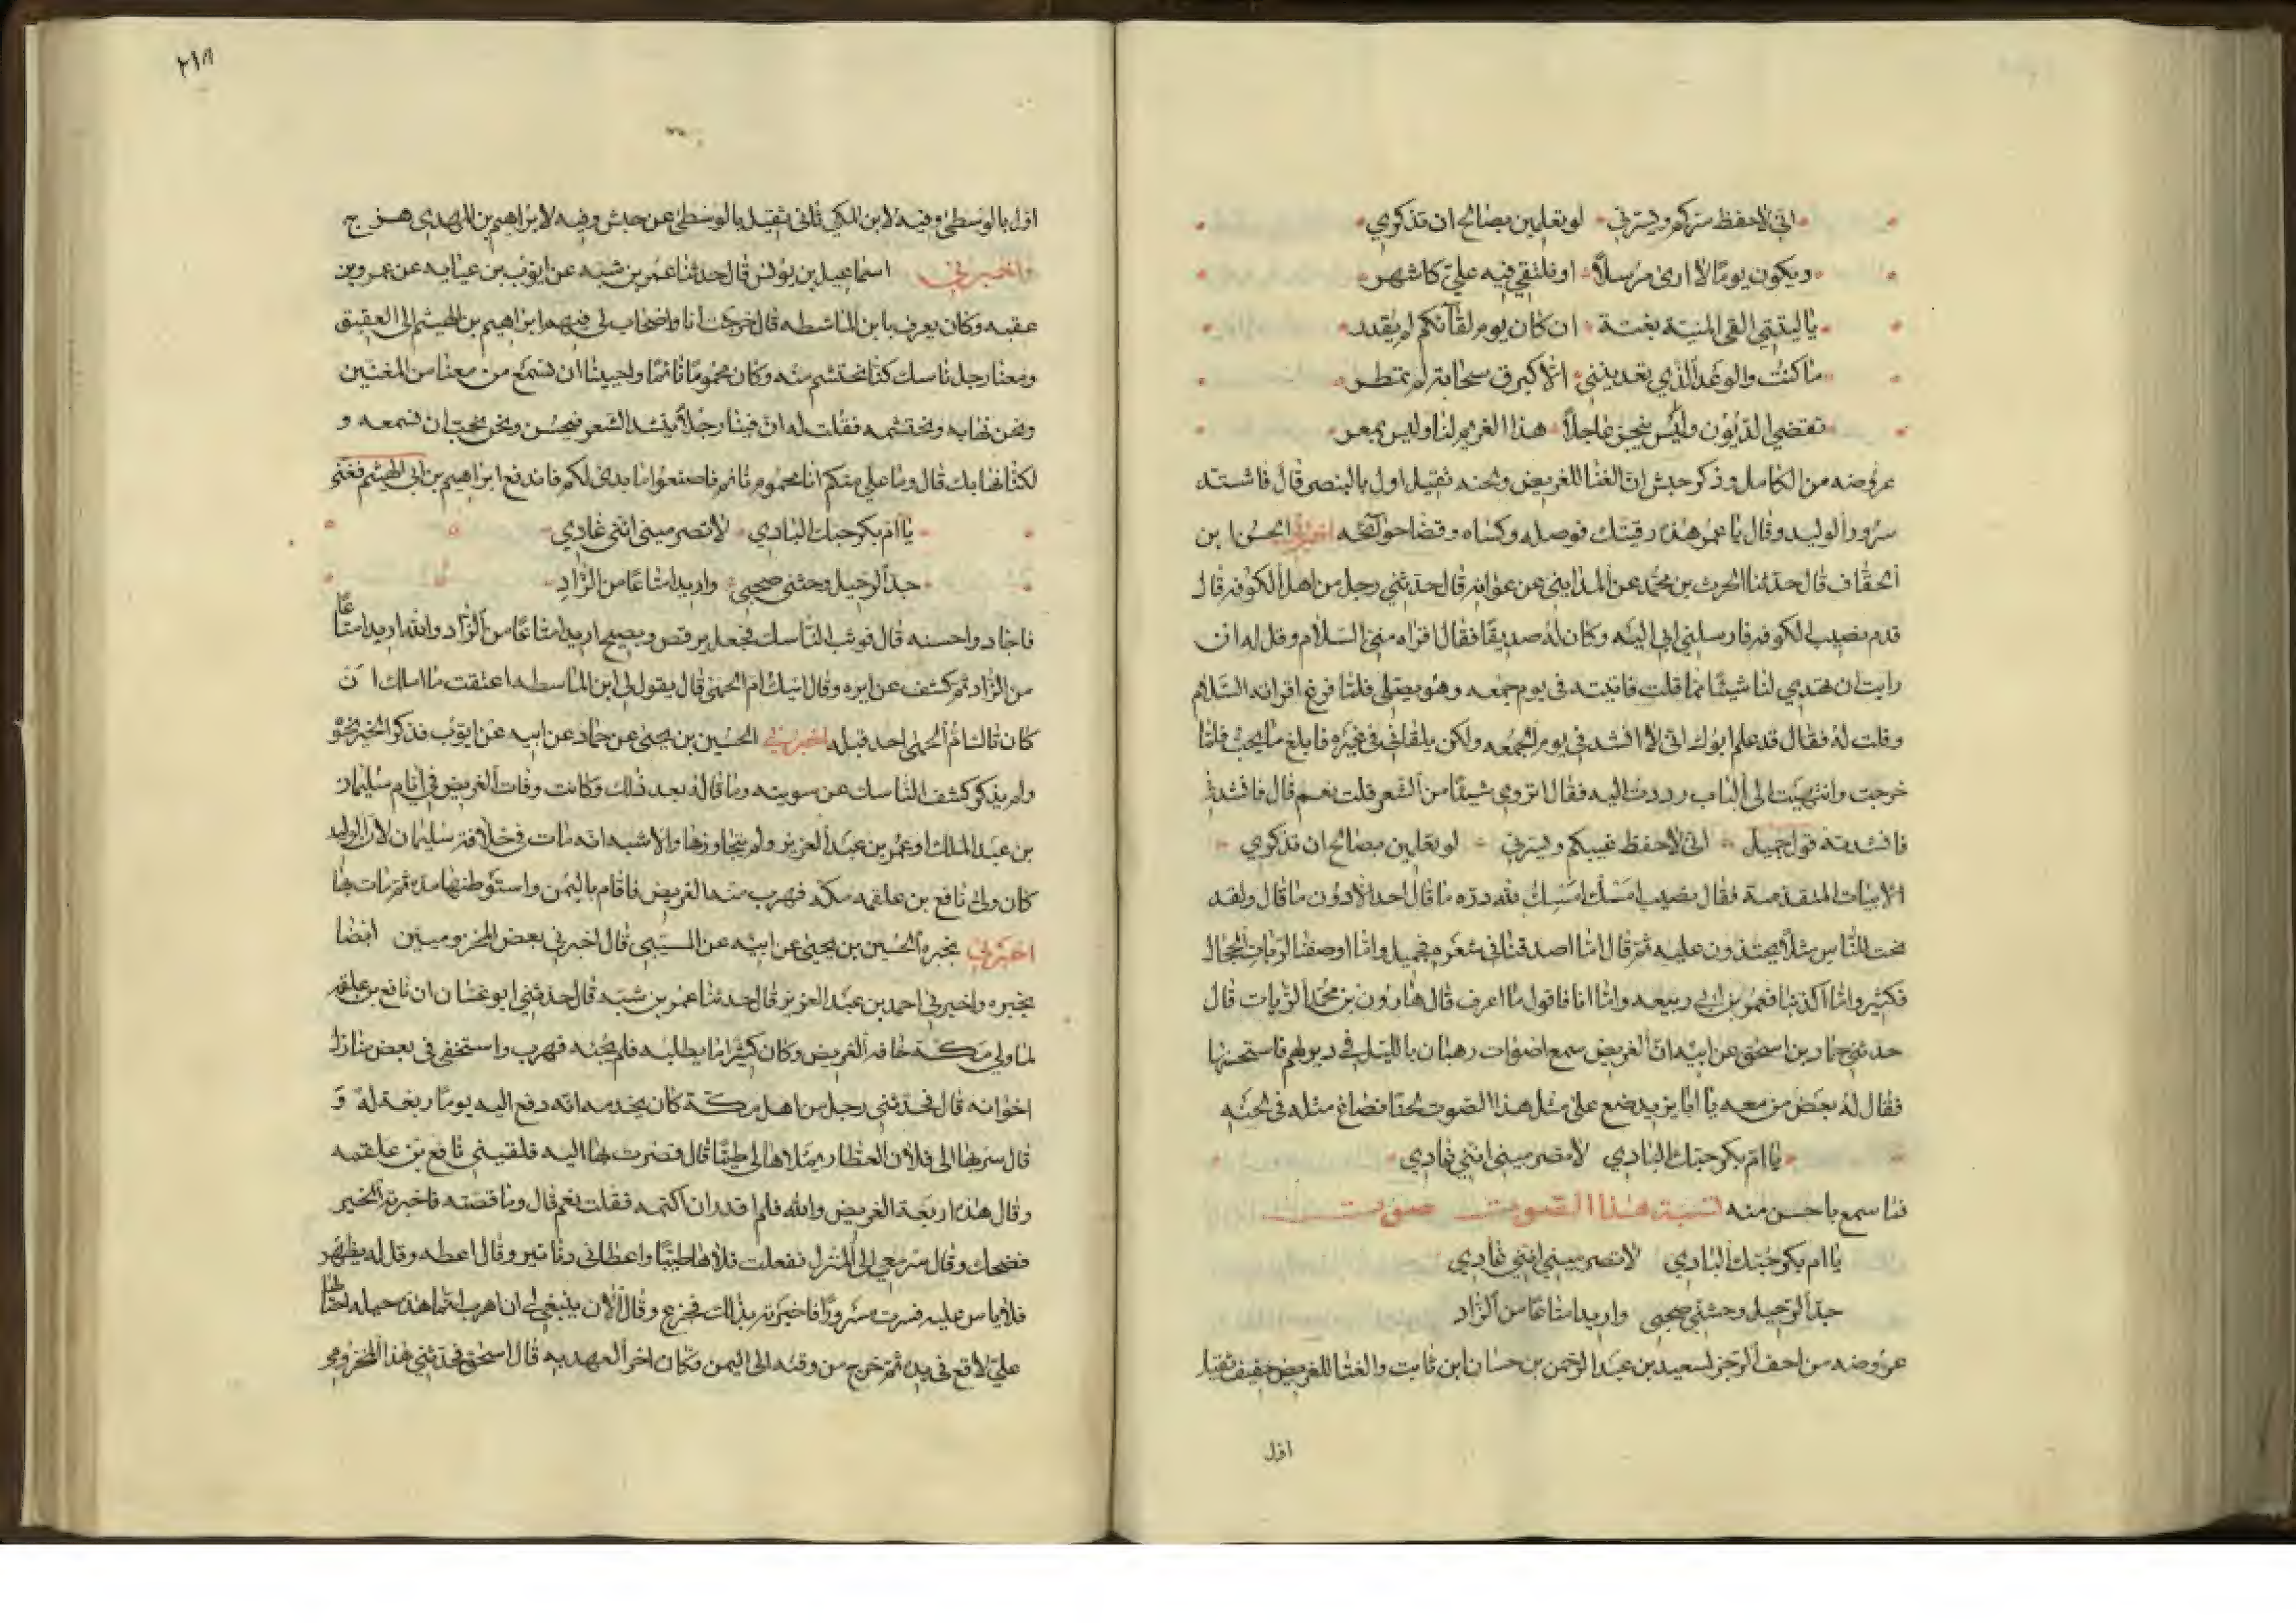 اني لاحفظ سركم ويسرني لو تعلمين بصالح ان تذكري
ويكون يوما لا ارى مرسلا او نلتقي فيه علي كاشهر
يا ليتني القى المنية بغتة ان كان يوم لقآئكم لم يقدر
ما كنت والوعد الذي تعدينني الا كبرق سحابة لم تمطر
تقضى الديون وليس ينجز عاجلا هذا الغريم لنا وليس بمعسر
عروضه من الكامل وذكر حبش ان الغنا للغريض ولحنه ثقيل اول بالبنصر قال فاشتد
سرور الوليد وقال يا عمر هذه رقيتك فوصله وكساه وقضا حوآئجه اخبرني الحسن بن
الخفاف قال حدثنا الحرث بن محمد عن المدايني عن عوانه قال حدثني رجل من اهل الكوفه قال
قدم نصيب الكوفه فارسلني ابي اليه وكان له صديقا فقال اقراه مني السلام وقل له ان
رايت ان تهدي لنا شيئا مما قلت فاتيته في يوم جمعه وهو يصلي فلما فرغ اقراته السلام
وقلت له فقال قد علم ابوك اني لا انشد في يوم الجمعه ولكن يلقاني في غيره فابلغ ما يحب فلما
خرجت وانتهيت الى الباب رددت اليه فقال اتروي شيئا من الشعر قلت نعم قال فانشدني
فانشدته قول جميل اني لاحفظ غيبكم ويسرني لو تعلمين بصالح ان تذكري
الابيات المتقدمة فقال نصيب امسك امسك لله دره ما قال احد الا دون ما قال ولقد
نحت للناس مثلا يحتذون عليه ثم قال اما اصدقنا في شعره فجميل واما اوصفنا لربات الحجال
فكثير واما اكذبنا فعمر بن ابي ربيعه واما انا فاقول ما اعرف قال هارون بن محمد الزيات قال
حدثني حماد بن اسحق عن ابيه ان الغريض سمع اصوات رهبان بالليل في دير لهم فاستحسنها
فقال له بعض من معه يا ابا يزيد ضع على مثل هذا الصوت لحنا فصاغ مثله في لحنه
يا ام بكر حبك البادي لا تصرميني انني غادي
فما سمع باحسن منه نسبة هذا الصوت صوت
يا ام بكر حبك البادي لا تصرميني انني غادي
جد الرحيل وحثني صحبي واريد امتاعا من الزاد
عروضه من احف الرجز لسعيد بن عبد الرحمن بن حسان ابن ثابت والغنا للغريض خفيف ثقيل
اول
٢١٨
اول بالوسطى وفيه لابن المكي ثاني ثقيل بالوسطى عن حبش وفيه لابراهيم بن المهدي هزج
واخبرني اسماعيل بن يونس قال حدثنا عمر بن شبه عن ايوب بن عبايه عن عمرو بن
عقبه وكان يعرف بابن الماشطه قال خرجت انا واصحاب لي فيهم ابراهيم بن الهيثم الى العقيق
ومعنا رجل ناسك كنا نحتشم منه وكان محموما نائما واحببنا ان نسمع من معنا من المغنين
ونحن نهابه ونحتشمه فقلت له ان فينا رجلا ينشد الشعر فيحسن ونحن نحب ان نسمعه و
لكنا نهابك قال وما علي منكم انا محموم نائم فاصنعوا ما بدى لكم فاندفع ابراهيم بن ابي الهيثم فغنى
يا ام بكر حبك البادي لا تصرميني انني غادي
جد الرحيل وحثني صحبي واريد امتاعا من الزاد
فاجاد واحسنه قال فوثب الناسك فجعل يرقص ويصيح اريد امتاعا من الزاد والله اريد امتاعا
من الزاد ثم كشف عن ايره وقال انيك ام الحمى قال يقول لي ابن الماسطه اعتقت ما املك ان
كان ناك ام الحمى احد قبله اخبرني الحسين بن يحيى عن حماد عن ابيه عن ايوب فذكر الخبر نحو
ولم يذكر كشف الناسك عن سويته وما قاله بعد ذلك وكانت وفات الغريض في ايام سليمان
بن عبد الملك او عمر بن عبد العزيز ولم يتجاوزها والاشبه انه مات في خلافة سليمان لان الوليد
كان ولى نافع بن علقمه مكه فهرب منه الغريض فاقام باليمن واستوطنها مدة ثم مات بها
اخبرني بخبره الحسين بن يحيى عن ابيه عن المسيبي قال اخبرني بعض المخزوميين ايضا
بخبره واخبرني احمد بن عبد العزيز قال حدثنا عمر بن شبه قال حدثني ابو غسان ان نافع بن علقمه
لما ولي مكة خافه الغريض وكان كثيرا ما يطلبه فلم يجئه فهرب واستخفى في بعض منازل
اخوانه قال فحدثني رجل من اهل مكة كان يخدمه انه دفع اليه يوما ربعة له و
قال سر بها الى فلان العطار يملاها لي طيبا قال فصرت بها اليه فلقيني نافع بن علقمه
وقال هذه اربعة الغريض والله فلم اقدر ان اكتمه فقلت نعم قال وما قصته فاخبرته الخبر
فضحك وقال سر معي الى المنزل ففعلت فملاها طيبا واعطاني دنانير وقال اعطه وقل له يظهر
فلا باس عليه فسرت مسرورا فاخبرته بذلك فجزع وقال الان ينبغي ان اهرب انما هذه حيله احتالها
علي لاقع في يده ثم خرج من وقته الى اليمن فكان اخر العهد به قال اسحق فحدثني هذا المخزومي